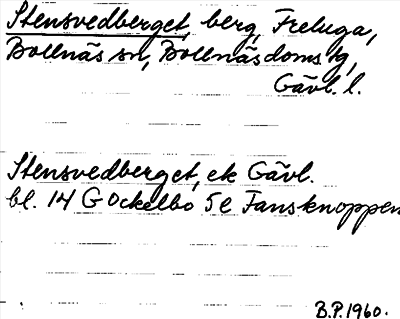 Stensvedberget, berg, Freluga,
Bollnäs sn, Bollnäs doms tg,
Gävl. l.
Stensvedberget, ek Gävl.
bl. 14 G Ockelbo 5e Fansknoppen
B.P. 1960.